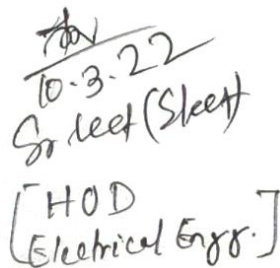 10.3.22
Sr. lect (Sleet)
[HOD
Electrical Engg.]